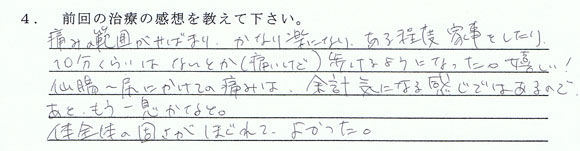 4. 前回の治療の感想を教えて下さい。
痛みの範囲がせばまり、かなり楽になり、ある程度家事をしたり、
10分くらいはなんとか(痛いけど)歩けるようになった。嬉しい!
仙腸〜尻にかけての痛みは、余計気になる感じではあるので
あと、もう一息かなと。
体全体の固さがほぐれて、よかった。